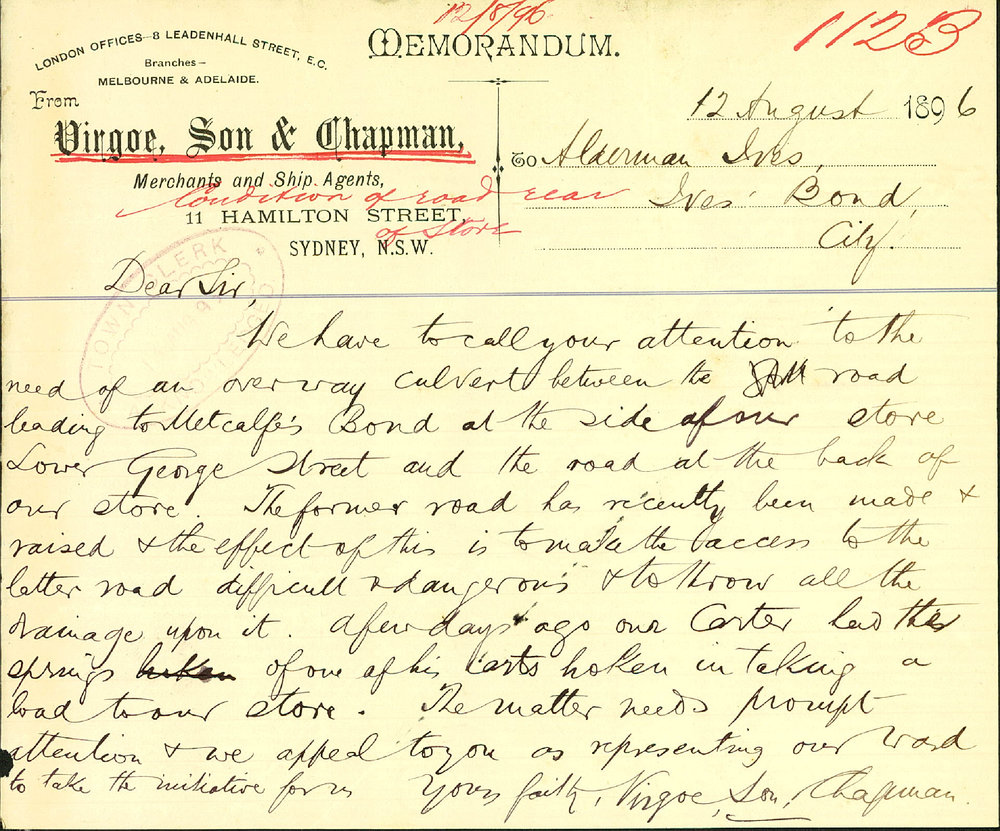 12/8/96
1123
LONDON OFFICES-8 LEADENHALL STREET, E.C.
Branches-
MELBOURNE & ADELAIDE.
MEMORANDUM.
From
Virgoe, Son & Chapman,
Merchants and Ship Agents,
11 HAMILTON STREET,
SYDNEY, N.S.W.
Condition of road rear
of Store
12 August 1896
To Alderman Ives,
Ives' Bond,
City.
TOWN CLERK
Dear Sir,
We have to call your attention to the
need of an overway culvert between the road
leading to Metcalfe's Bond at the side of our store
Lower George Street and the road at the back of
our store. The former road has recently been made &
raised & the effect of this is to make the access to the
latter road difficult & dangerous & to throw all the
drainage upon it. A few days ago our Carter had the
springs broken of one of his carts broken in taking a
load to our store. The matter needs prompt
attention & we appeal to you as representing our Ward
to take the initiative for us Yours faithy, Virgoe, Son, Chapman.